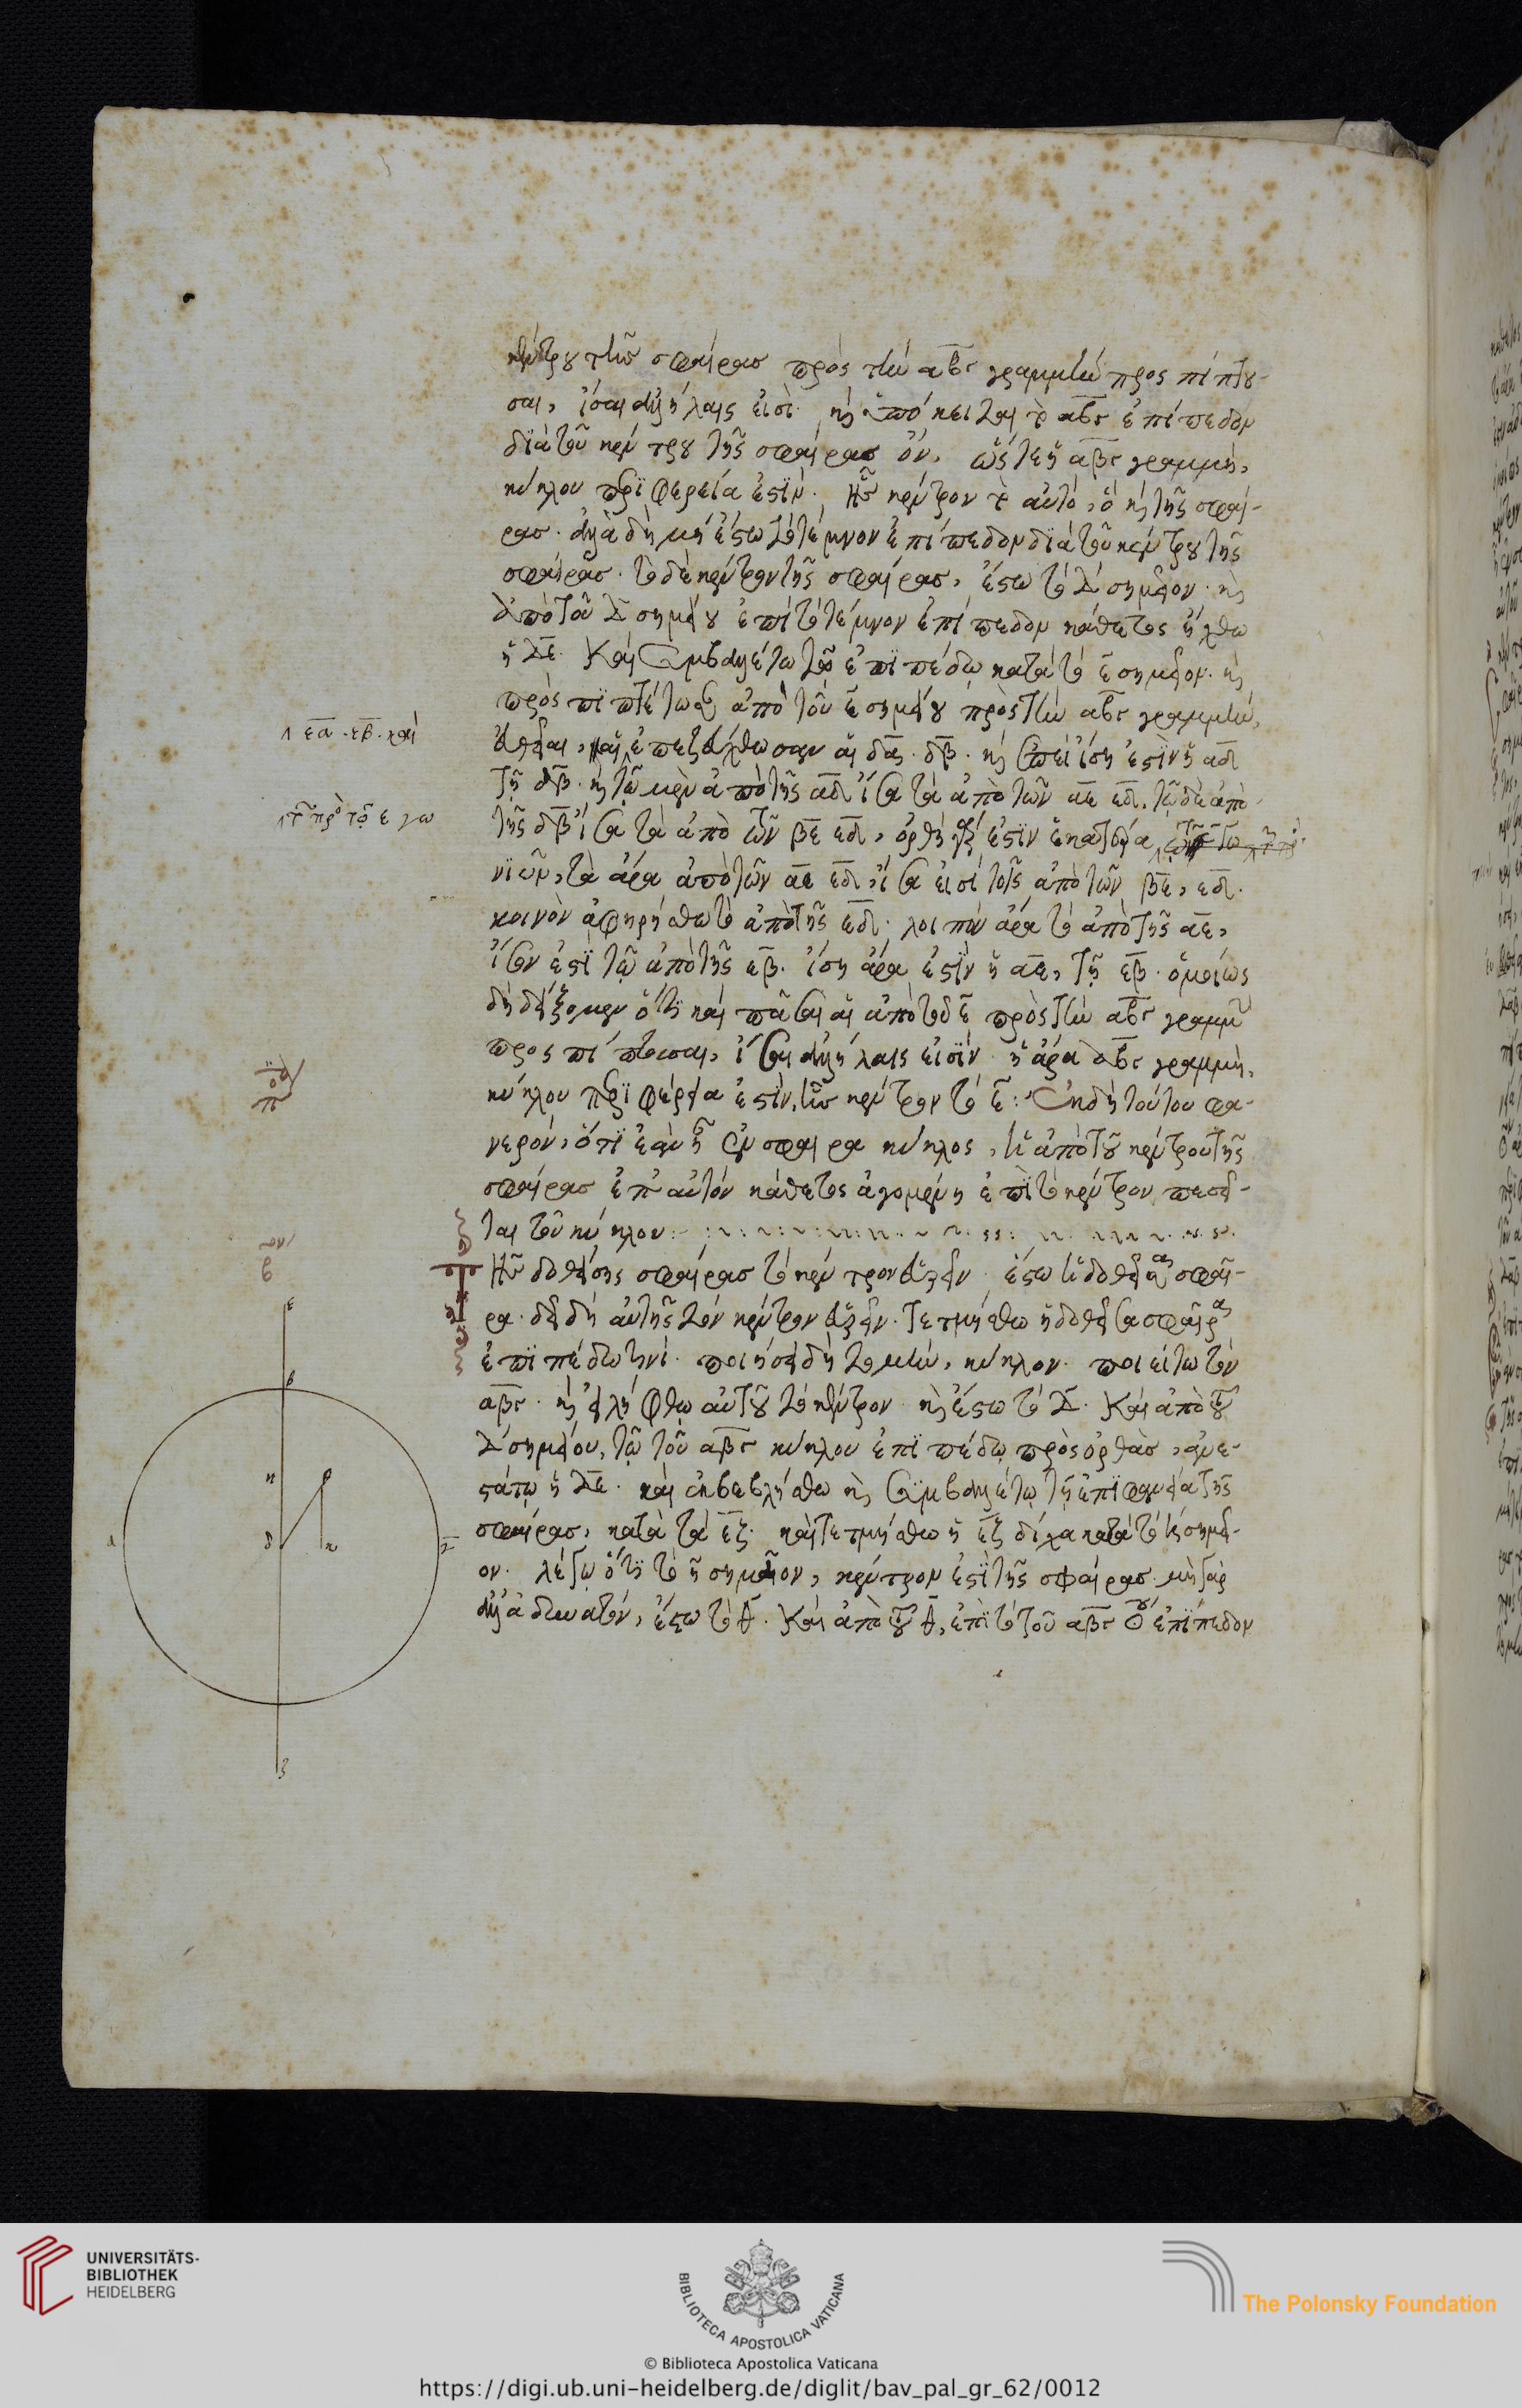 κέντρου τῆς σφαίρας πρὸς τὴν αβγ γραμμὴν προσπίπτου-
σαι, ἴσαι ἀλλήλαις εἰσὶ· καὶ ἀπόκειται τὸ αβγ ἐπίπεδον
διὰ τοῦ κέντρου τῆς σφαίρας ὄν, ὥστε ἡ αβγ γραμμὴ,
κύκλου περιφερεία ἐστὶν· ἧς κέντρον τὸ αὐτὸ, ὃ καὶ τῆς σφαί-
ρας· ἀλλὰ δὴ μὴ ἔστω τὸ τέμνον ἐπίπεδον διὰ τοῦ κέντρου τῆς
σφαίρας· τὸ δὲ κέντρον τῆς σφαίρας, ἔστω τὸ δ σημεῖον· καὶ
ἀπὸ τοῦ δ σημείου ἐπὶ τὸ τέμνον ἐπίπεδον κάθετος ἤχθω
ἡ δε· καὶ συμβαλέτω τῷ ἐπιπέδῳ κατὰ τὸ ε σημεῖον· καὶ
προσπιπτέτωσαν ἀπὸ τοῦ ε σημείου πρὸς τὴν αβγ γραμμὴν,
εὐθεῖαι, εα · εβ · καὶ
καὶ ἐπεζεύχθωσαν αἱ δα · δβ · καὶ ἐπεὶ ἴση ἐστὶν ἡ αδ
τῇ δβ · καὶ τῷ μὲν ἀπὸ τῆς αδ ἴσα τὰ ἀπὸ τῶν αε εδ, τῷ δὲ ἀπὸ
τῆς δβ ἴσα τὰ ἀπὸ τῶν βε εδ, ὀρθὴ γάρ ἐστιν ἑκατέρα
τῶν πρὸς τῷ ε γω
νιῶν, τὰ ἄρα ἀπὸ τῶν αε εδ, ἴσα εἰσὶ τοῖς ἀπὸ τῶν βε, εδ·
κοινὸν ἀφῃρήσθω τὸ ἀπὸ τῆς εδ· λοιπὸν ἄρα τὸ ἀπὸ τῆς αε,
ἴσον ἐστὶ τῷ ἀπὸ τῆς εβ· ἴση ἄρα ἐστὶν ἡ αε, τῇ εβ· ὁμοίως
δὴ δείξομεν ὅτι καὶ πᾶσαι αἱ ἀπὸ τοῦ ε πρὸς τὴν αβγ γραμμὴν
προσπίπτουσαι, ἴσαι ἀλλήλαις εἰσίν· ἡ ἄρα αβγ γραμμὴ,
κύκλου περιφέρεια ἐστὶν, ἧς κέντρον τὸ ε: ἐκ δὴ τούτου φα-
νερόν, ὅτι ἐὰν ᾖ ἐν σφαίρα κύκλος, ἡ ἀπὸ τοῦ κέντρου τῆς
σφαίρας ἐπ' αὐτὸν κάθετος ἀγομένη ἐπὶ τὸ κέντρον πεσεῖ-
ται τοῦ κύκλου:
τῆς δοθείσης σφαίρας τὸ κέντρον εὑρεῖν· ἔστω ἡ δοθεῖσα σφαῖ-
ρα· δεῖ δὴ αὐτῆς τὸν κέντρον εὑρεῖν· τετμήσθω ἡ δοθεῖσα σφαῖρα
ἐπιπέδῳ τινί· ποιήσει δὴ τομὴν, κύκλον· ποιείτω τὸν
αβγ· καὶ εἰλήφθω αὐτοῦ τὸ κέντρον· καὶ ἔστω τὸ δ· καὶ ἀπὸ τοῦ
δ σημείου, τῷ τοῦ αβγ κύκλου ἐπιπέδῳ πρὸς ὀρθὰς, ἀνε-
στάτω ἡ δε· καὶ ἐκβεβλήσθω καὶ συμβαλέτω τῇ ἐπιφανείᾳ τῆς
σφαίρας, κατὰ τὰ εζ· καὶ τετμήσθω ἡ εζ δίχα κατὰ τὸ η σημεῖ-
ον· λέγω ὅτι τὸ η σημεῖον, κέντρον ἐστὶ τῆς σφαίρας· μὴ γάρ
ἀλλὰ δυνατόν, ἔστω τὸ θ· καὶ ἀπὸ τοῦ θ, ἐπὶ τὸ τοῦ αβγ κύκλου ἐπίπεδον
ε
β
η
θ
α
δ
κ
γ
ζ
UNIVERSITÄTS-
BIBLIOTHEK
HEIDELBERG
BIBLIOTECA APOSTOLICA VATICANA
The Polonsky Foundation
© Biblioteca Apostolica Vaticana
https://digi.ub.uni-heidelberg.de/diglit/bav_pal_gr_62/0012